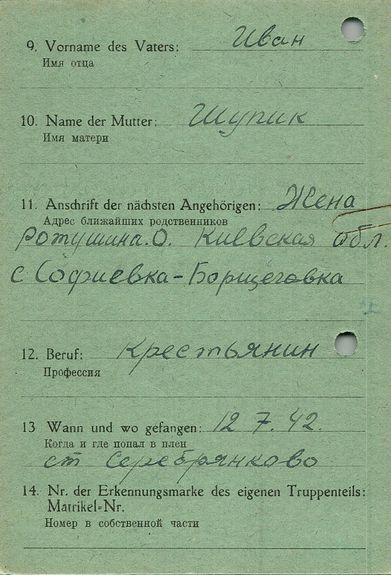 9. Vorname des Vaters: Иван
Имя отца
10. Name der Mutter: Шупик
Имя матери
11. Anschrift der nächsten Angehörigen: Жена
Адрес ближайших родственников
Ротушина. О. Киевская обл.
с Софиевка-Борщеговка
12. Beruf: крестьянин
Профессия
13 Wann und wo gefangen: 12 7. 42.
Когда и где попал в плен
ст Серебрянково
14. Nr. der Erkennungsmarke des eigenen Truppenteils:
Matrikel-Nr.
Номер в собственной части